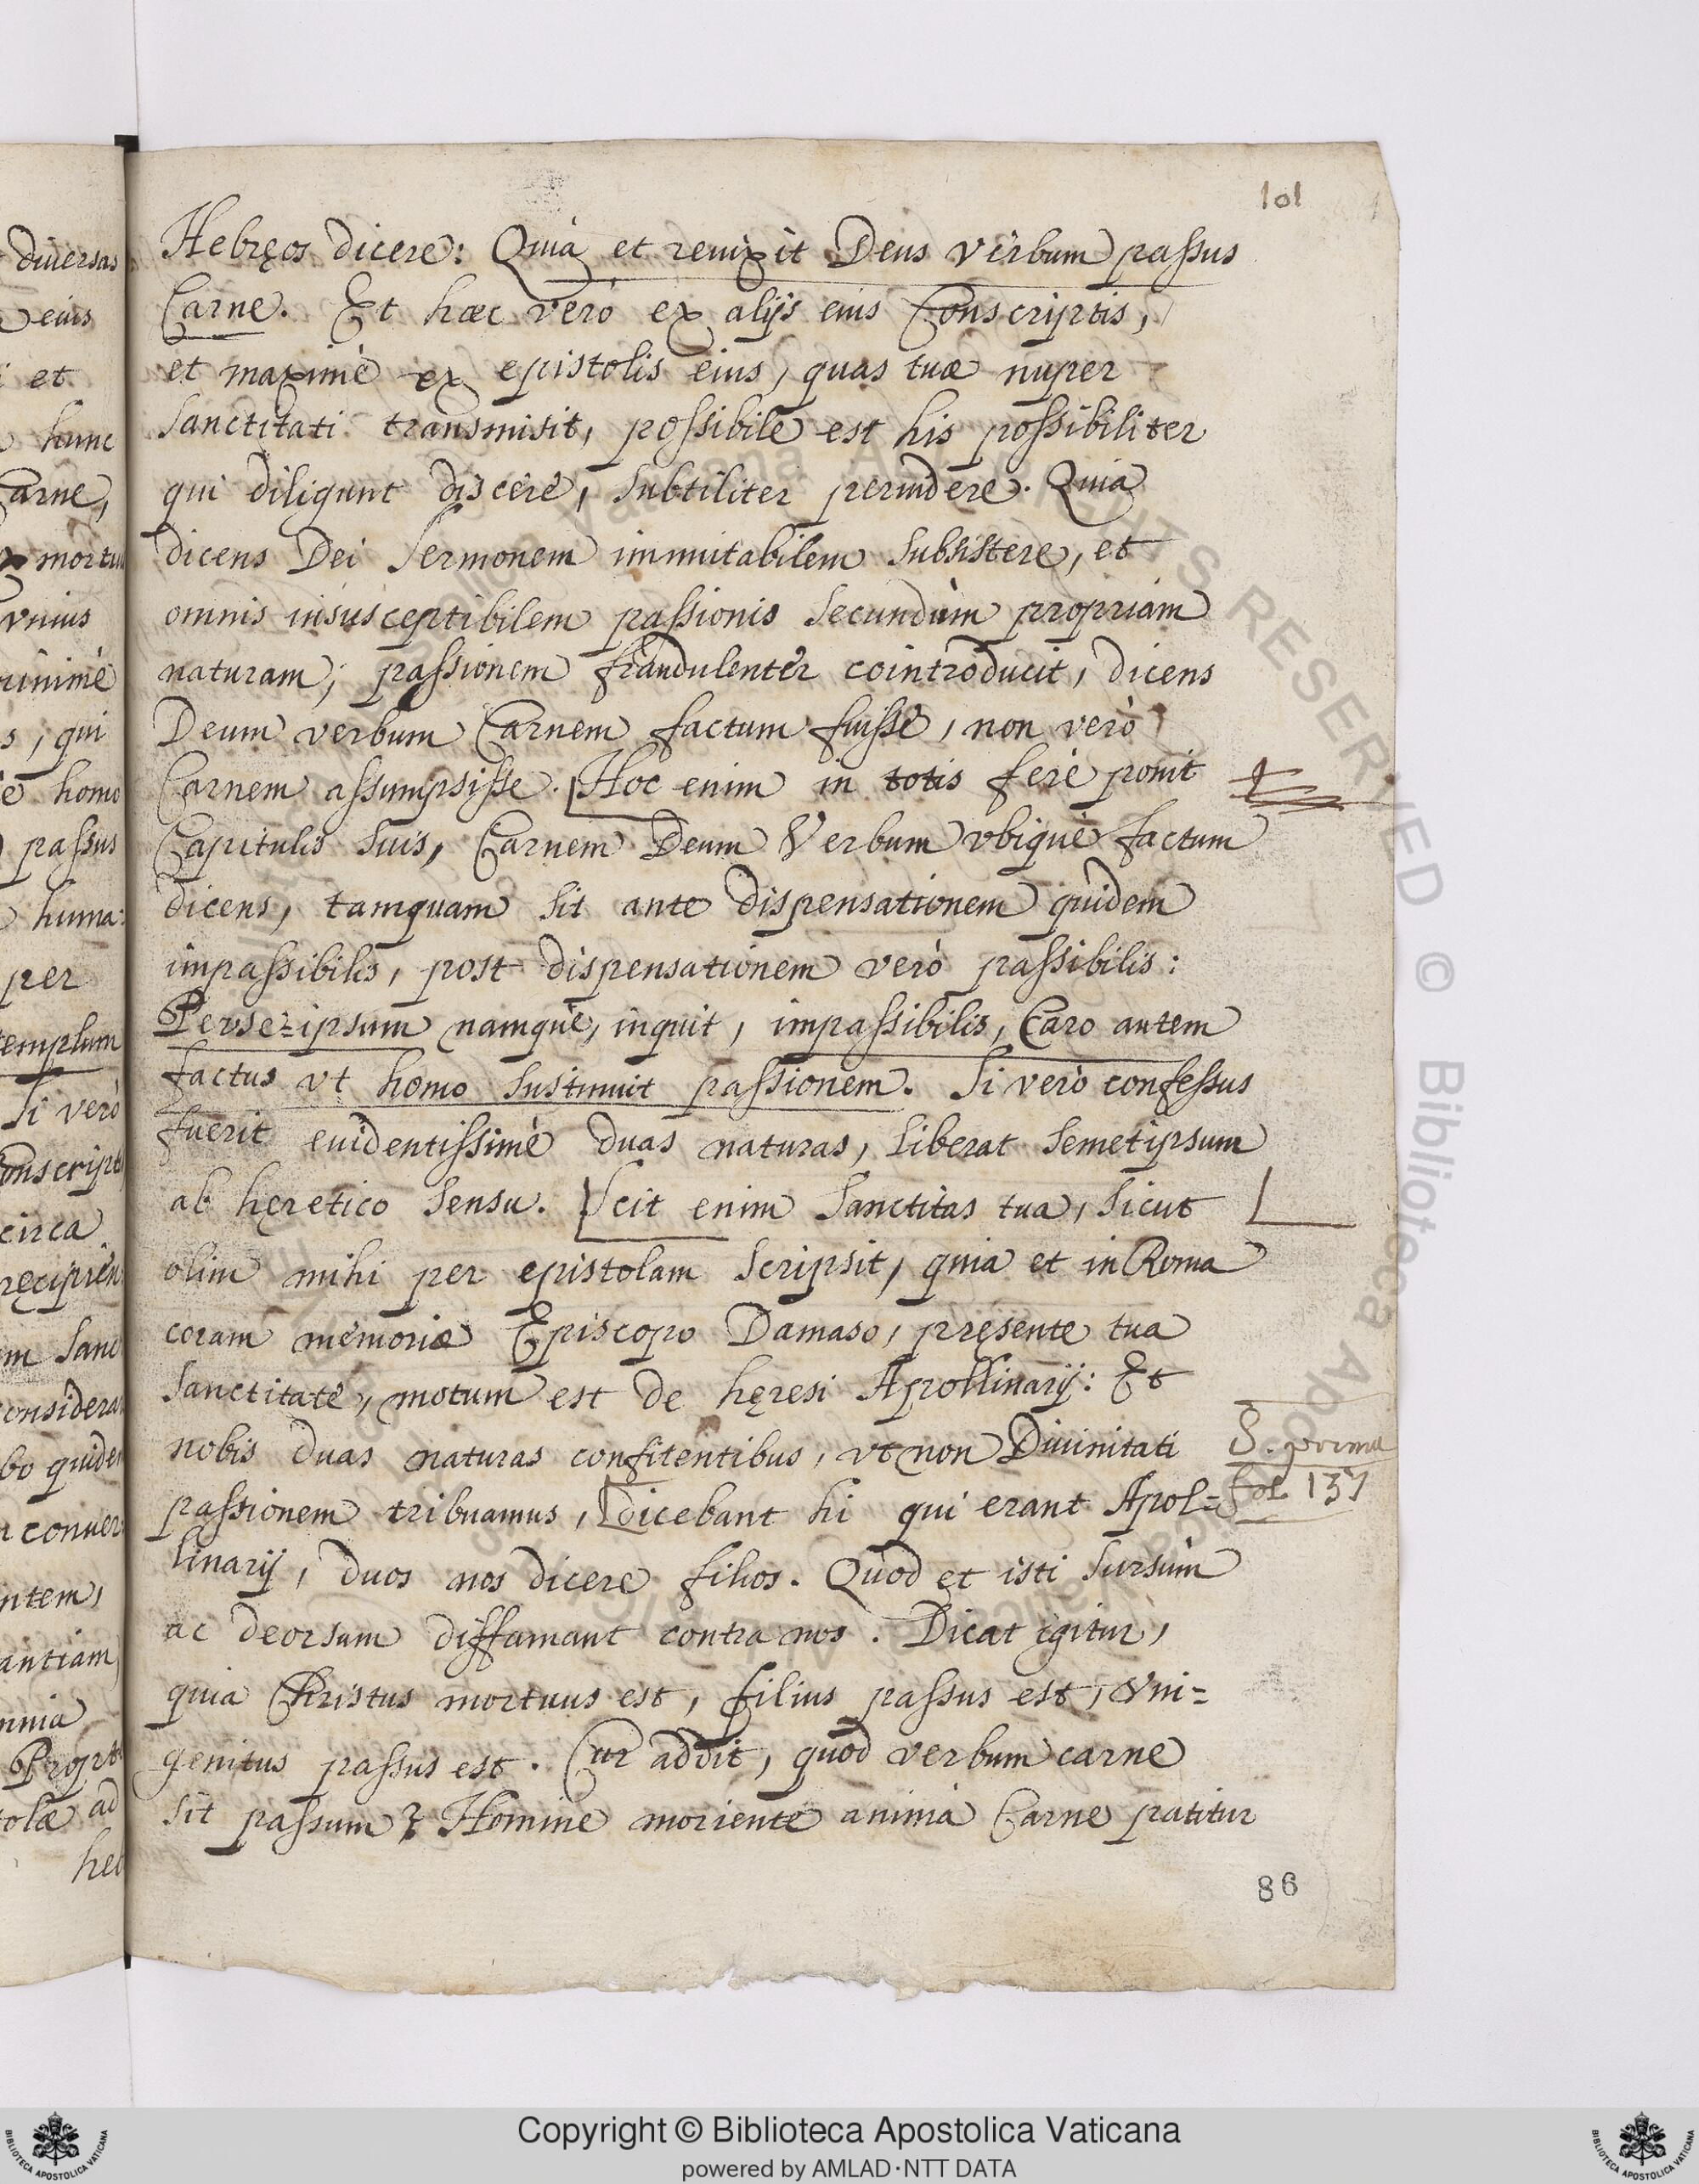 101
Hebręos dicere: Quia et reuixit Deus verbum passus
Carne. Et hæc verò ex alijs eius Conscriptis,
et maximè ex epistolis eius, quas tuæ nuper
Sanctitati transmisit, possibile est his possibiliter
qui diligunt discere, subtiliter peruidere. Quia
dicens Dei Sermonem immutabilem subsistere, et
omnis insusceptibilem passionis secundùm propriam
naturam; passionem fraudulenter cointroducit, dicens
Deum verbum Carnem factum fuisse, non verò
Carnem assumpsisse. Hoc enim in totis ferè ponit
Capitulis suis, Carnem Deum Verbum vbique factum
dicens, tamquam sit ante dispensationem quidem
impassibilis, post dispensationem verò passibilis:
Per se=ipsum namque, inquit, impassibilis, Caro autem
factus vt homo sustinuit passionem. Si verò confessus
fuerit euidentissimè duas naturas, liberat semetipsum
ab hęretico sensu. Scit enim Sanctitas tua, sicut
olim mihi per epistolam scripsit, quia et in Roma
coram memoriæ Episcopo Damaso, pręsente tua
Sanctitate, motum est de hęresi Apollinarij: Et
nobis duas naturas confitentibus, vt non Diuinitati
passionem tribuamus, dicebant hi qui erant Apol=
linarij, duos nos dicere filios. Quod et isti sursùm
ac deorsum diffamant contra nos. Dicat igitur,
quia Christus mortuus est, filius passus est, Vni=
genitus passus est. Cur addit, quod verbum carne
sit passum? Homine moriente anima Carne patitur
S. prima
fol. 137
86
diuersas
eius
et
hunc
Carne,
mortu
vnius
minimè
s, qui
homo
passus
huma:
per
templum
Si verò
onscript
circa
recipien
m Sanc
considera
bo quide
conuer
ntem,
antiam
mnia
Propt
tolæ ad
heb
Copyright © Biblioteca Apostolica Vaticana
powered by AMLAD·NTT DATA
BIBLIOTECA APOSTOLICA VATICANA
BIBLIOTECA APOSTOLICA VATICANA